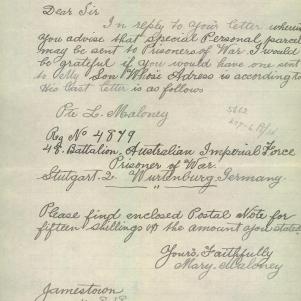 Dear Sir
In reply to your letter wherein
you advise that Special Personal parcel
may be sent to Prisoners of War I would
be grateful if you would have one sent
to My Son Who's Adress is according to
His Last letter is as follows
Pte L. Maloney
Reg No 4879
4th Battalion, Australian Imperial Force
Prisoner of War.
Stutgart 2 Wurtenburg Germany
Please find enclosed Postal Note for
fifteen shillings the amount you stated
Yours Faithfully
Mary Maloney
Jamestown